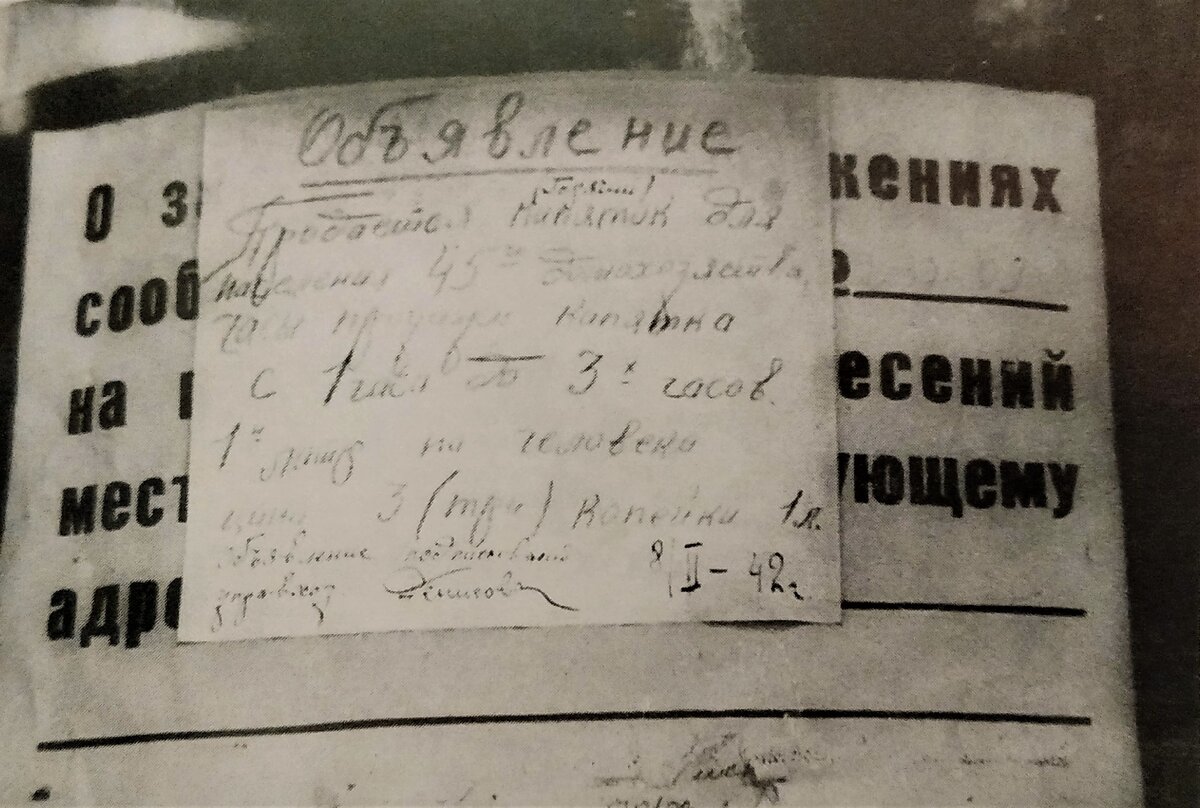 Объявление
Продается кипяток для
населения 45го домохозяйства,
часы продажи кипятка
с 1 до 3х часов.
1н на человека
цена 3 (три) копейки 1л.
объявление подписывал
управхоз
8/II-42г
О за
жениях
сооб
на п
есений
мест
ующему
адре